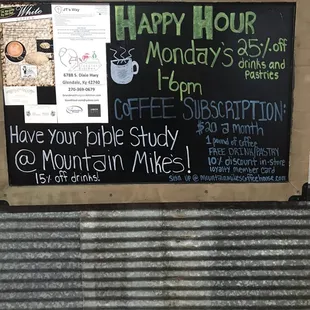 White
JT's Way
6788 S. Dixie Hwy
Glendale, Ky 42740
270-369-0679
HAPPY HOUR
Monday's 25% off
drinks and
Pastries
1-6pm
COFFEE SUBSCRIPTION:
$20 a month
1 pound of coffee
FREE DRINK/PASTRY
10% discount in-store
loyalty member card
sign up @ mountainmikescoffeehouse.com
Have your bible Study
@ Mountain Mike's!
15% off drinks!